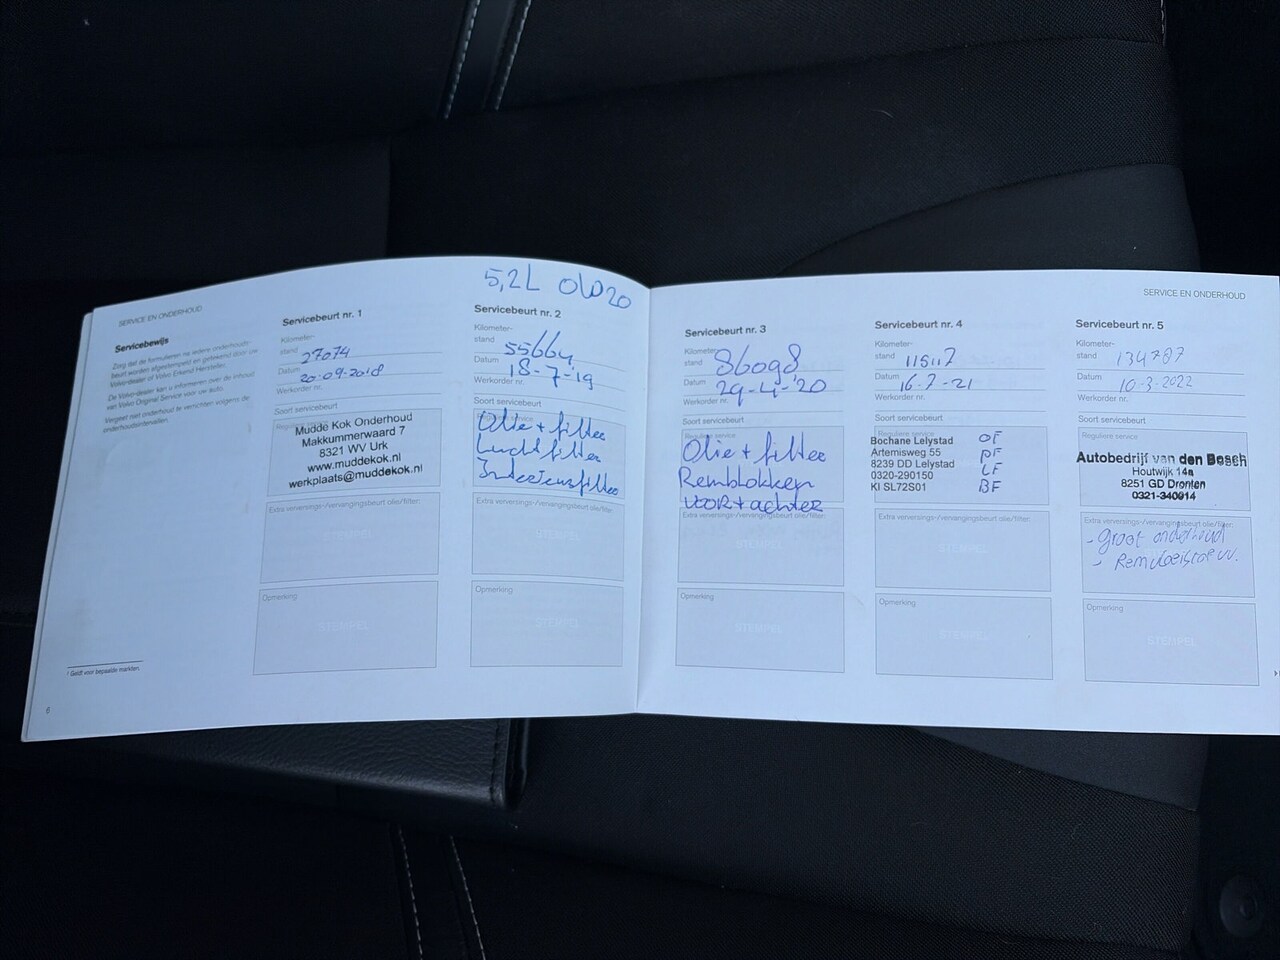 5,2L 0W20
SERVICE EN ONDERHOUD
Servicebewijs
Zorg dat de formulieren na iedere onderhouds-
beurt worden afgestempeld en getekend door uw
Volvo-dealer of Volvo Erkend Hersteller.
De Volvo-dealer kan u informeren over de inhoud
van Volvo Original Service voor uw auto.
Vergeet niet onderhoud te verrichten volgens de
onderhoudsintervallen.
1 Geldt voor bepaalde markten.
6
Servicebeurt nr. 1
Kilometer-
stand 27074
Datum 20-09-2018
Werkorder nr.
Soort servicebeurt
Reguliere service
Mudde Kok Onderhoud
Makkummerwaard 7
8321 WV Urk
www.muddekok.nl
werkplaats@muddekok.nl
Extra verversings-/vervangingsbeurt olie/filter:
STEMPEL
Opmerking
STEMPEL
Servicebeurt nr. 2
Kilometer-
stand 55664
Datum 18-7-'19
Werkorder nr.
Soort servicebeurt
Reguliere service
Olie + filter
Luchtfilter
Interieurfilter
Extra verversings-/vervangingsbeurt olie/filter:
STEMPEL
Opmerking
STEMPEL
SERVICE EN ONDERHOUD
Servicebeurt nr. 3
Kilometer-
stand 86098
Datum 29-4-'20
Werkorder nr.
Soort servicebeurt
Reguliere service
Olie + filter
Remblokken
voor + achter
Extra verversings-/vervangingsbeurt olie/filter:
STEMPEL
Opmerking
STEMPEL
Servicebeurt nr. 4
Kilometer-
stand 115117
Datum 16-7-21
Werkorder nr.
Soort servicebeurt
Reguliere service
Bochane Lelystad OF
Artemisweg 55 PF
8239 DD Lelystad LF
0320-290150 BF
KI SL72S01
Extra verversings-/vervangingsbeurt olie/filter:
STEMPEL
Opmerking
STEMPEL
Servicebeurt nr. 5
Kilometer-
stand 134787
Datum 10-3-2022
Werkorder nr.
Soort servicebeurt
Reguliere service
Autobedrijf van den Bosch
Houtwijk 14a
8251 GD Dronten
0321-340014
Extra verversings-/vervangingsbeurt olie/filter:
- groot onderhoud
- Remvloeistof vv.
Opmerking
STEMPEL